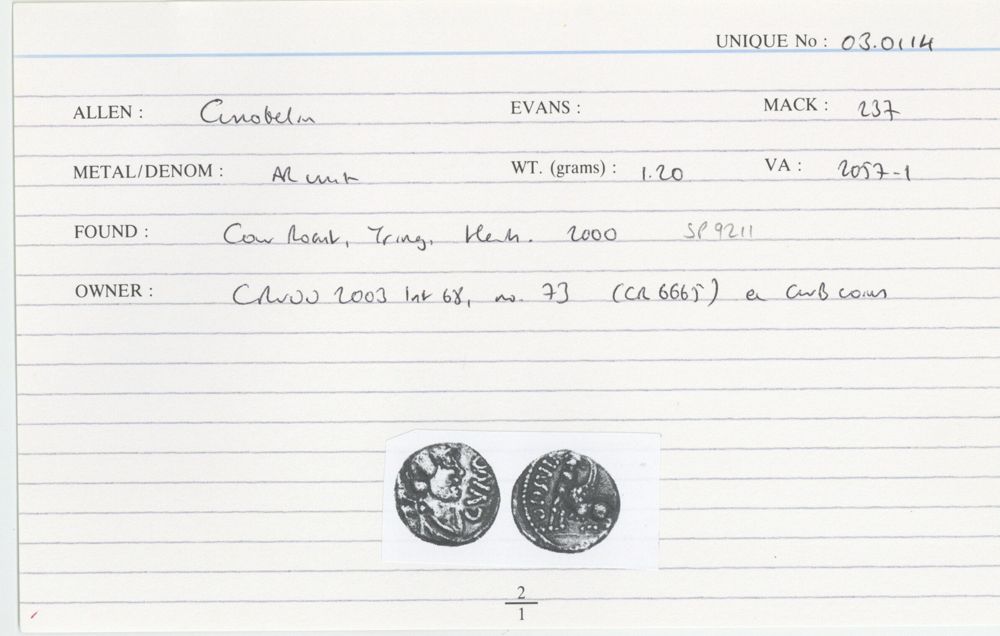 UNIQUE No : 03.0114
ALLEN : Cunobelin EVANS : MACK : 237
METAL/DENOM : AR unit WT. (grams) : 1.20 VA : 2057-1
FOUND : Cow Roast, Tring, Herts. 2000 SP 9211
OWNER : CR 2003 list 68, no. 73 (CR 6665) ex coins
CVNO
2
1